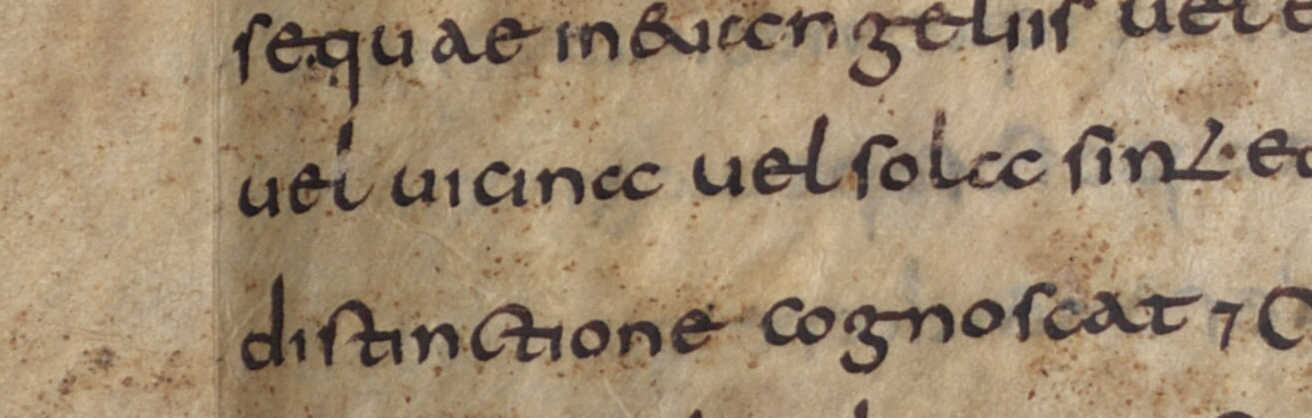 sequae in euangeliis uel
uel uicina uel sola sint
distinctione cognoscat ⁊